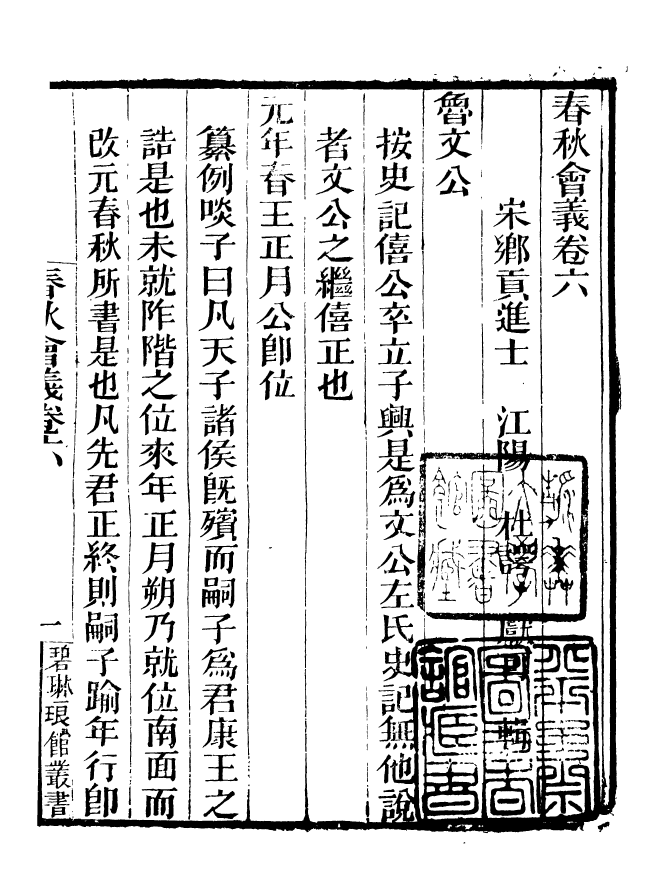 春秋會義卷六
宋鄉貢進士　江陽　杜諤　獻可　輯
魯文公
按史記僖公卒立子興是為文公左氏史記無他說
者文公之繼僖正也
元年春王正月公卽位
纂例啖子曰凡天子諸侯旣殯而嗣子為君康王之
誥是也未就阼階之位來年正月朔乃就位南面而
改元春秋所書是也凡先君正終則嗣子踰年行卽
春秋會義卷六
一
碧琳琅館叢書